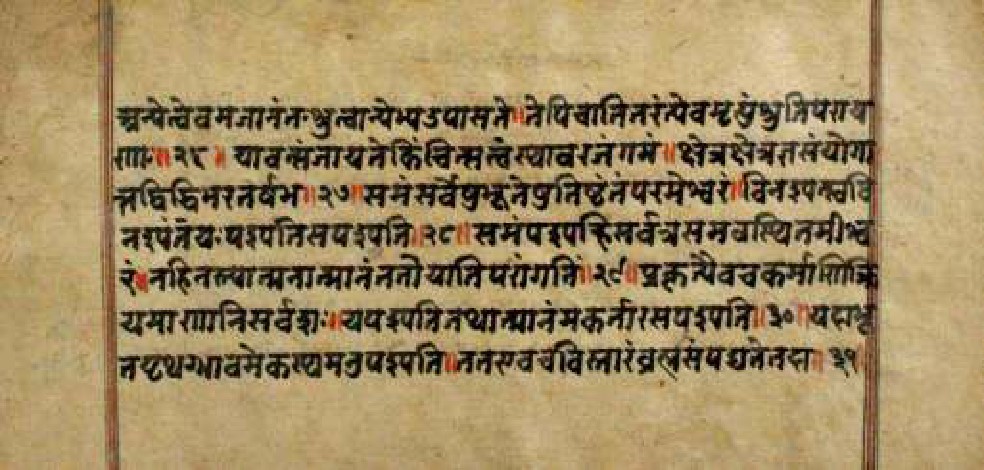 अन्येत्वेवमजानंतःश्रुत्वान्येभ्यउपासते॥तेपिचातितरंत्येवमृत्युंश्रुतिपराय
णाः॥२६॥यावत्संजायतेकिंचित्सत्वंस्थावरजंगमं॥क्षेत्रक्षेत्रज्ञसंयोगा
त्तद्विद्धिभरतर्षभ॥२७॥समंसर्वेषुभूतेषुतिष्ठंतंपरमेश्वरं॥विनश्यत्स्ववि
नश्यंतंयःपश्यतिसपश्यति॥२८॥समंपश्यन्हिसर्वत्रसमवस्थितमीश्व
रं॥नहिनस्त्यात्मनात्मानंततोयातिपरांगतिं॥२९॥प्रकृत्यैवचकर्माणिक्रि
यमाणानिसर्वशः॥यःपश्यतितथात्मानमकर्तारंसपश्यति॥३०॥यदाभू
तपृथग्भावमेकस्थमनुपश्यति॥ततएवचविस्तारंब्रह्मसंपद्यतेतदा॥३१